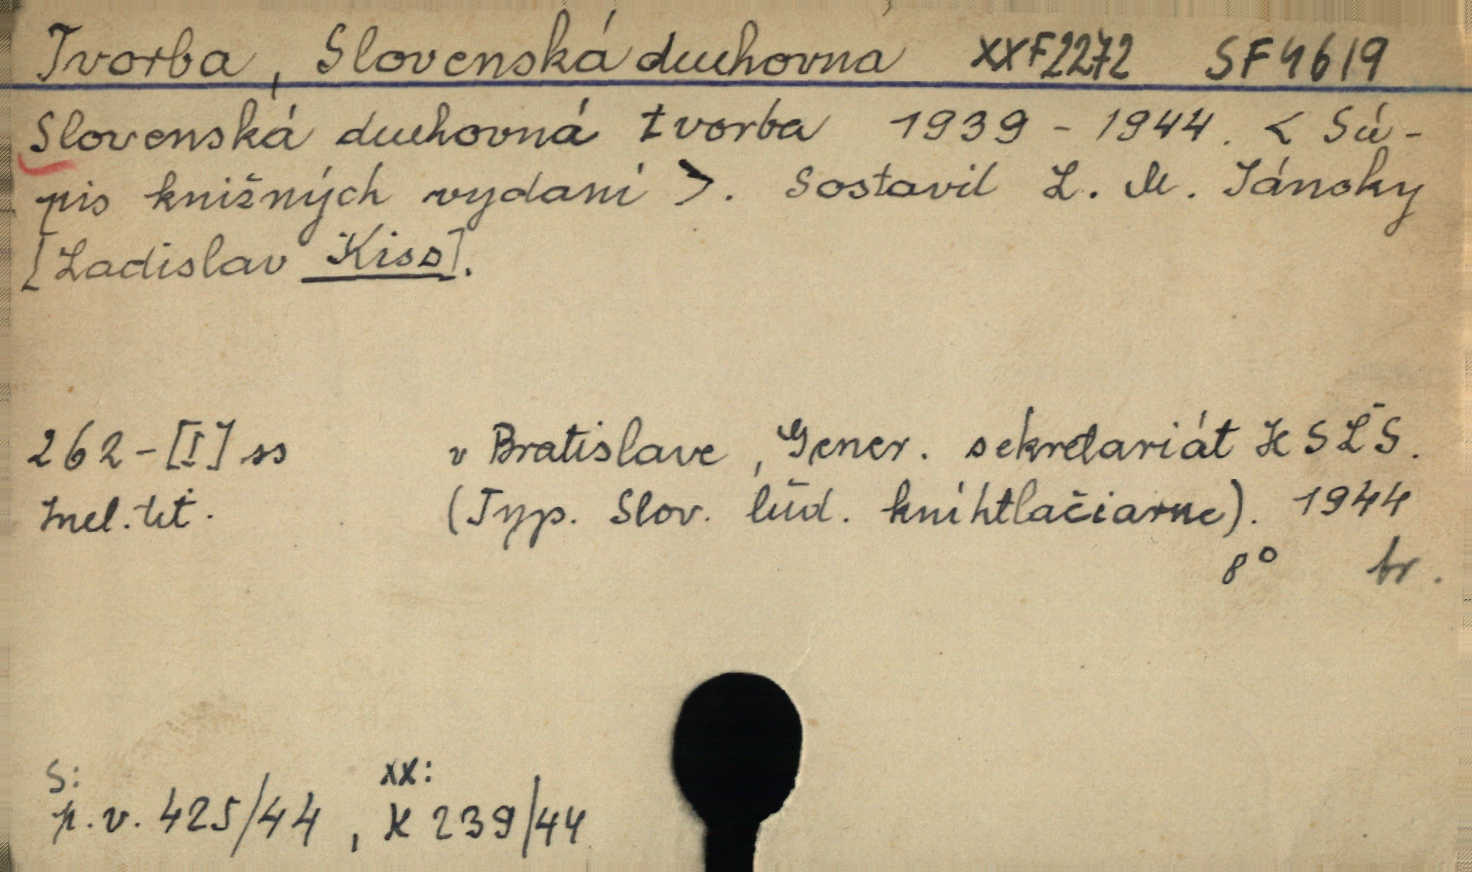 Tvorba, Slovenská duchovna XXF2272 SF4619
Slovenská duchovná tvorba 1939 - 1944. < Sú-
pis knižných vydaní >. Sostavil L. M. Jánsky
[Ladislav Kiss].
262-[I] ss v Bratislave, Gener. sekretariát HSĽS.
Incl. tit. (Typ. Slov. ľud. kníhtlačiarne). 1944
8° br.
S: XX:
p.v. 425/44, K 239/44